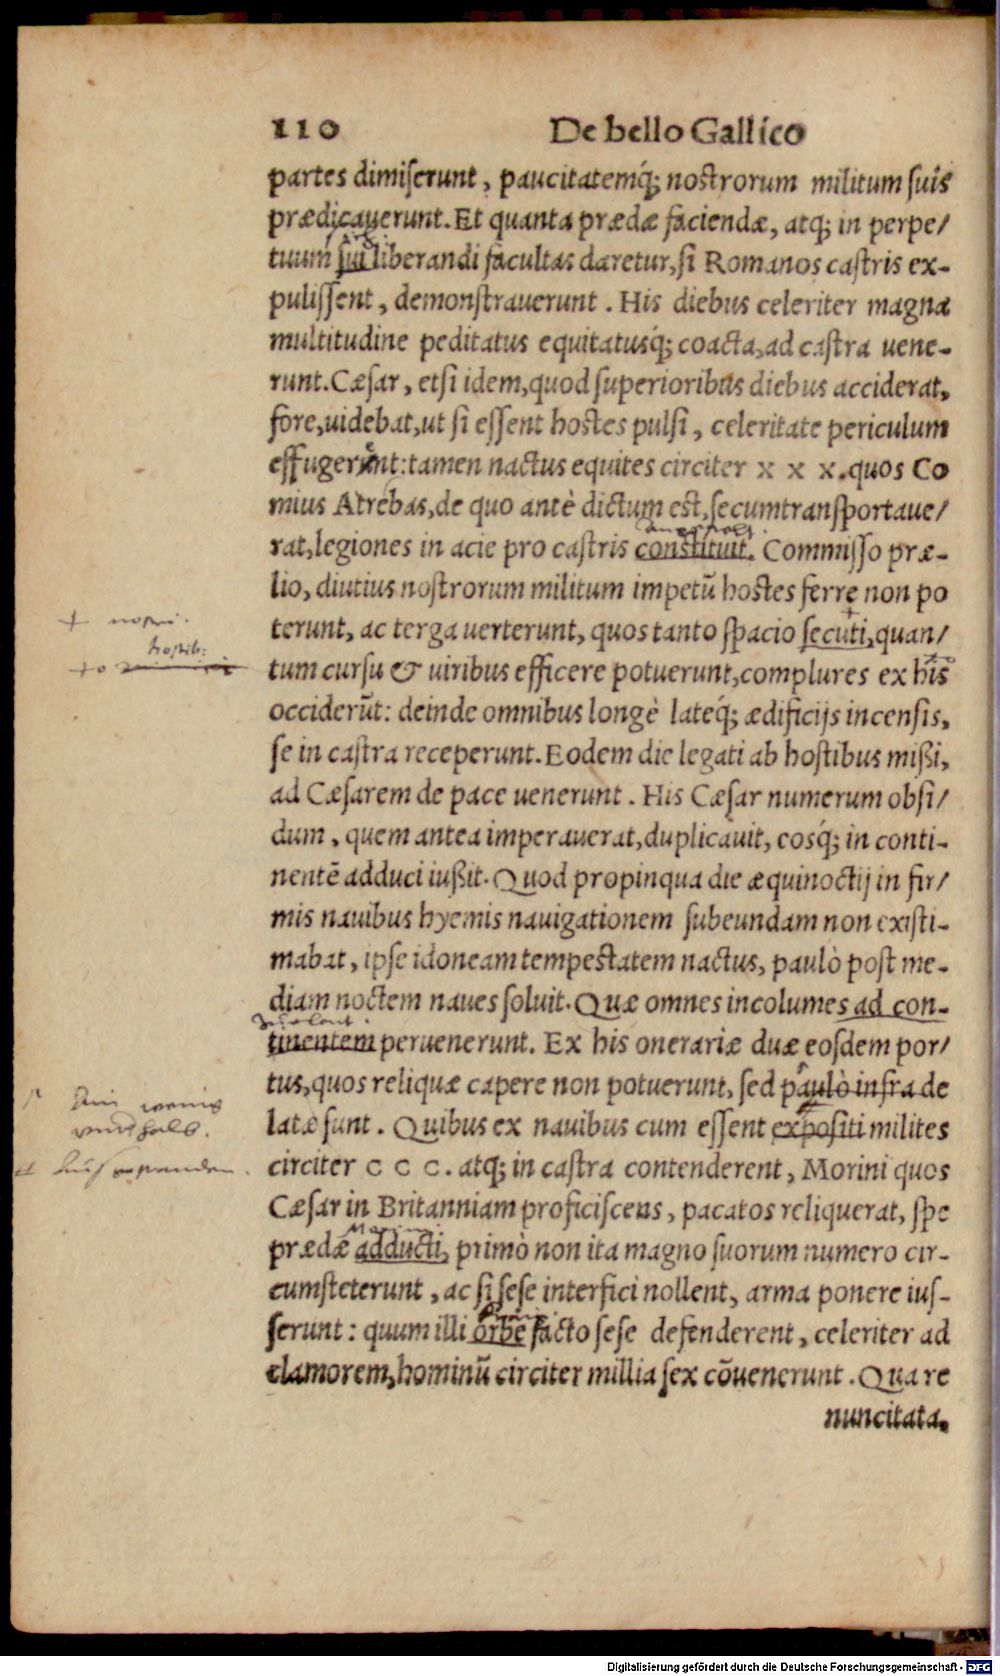 110 De bello Gallico
partes dimiserunt, paucitatemq́; nostrorum militum suis
prædicauerunt. Et quanta prædæ faciendæ, atq; in perpe/
tuum sui liberandi facultas daretur, si Romanos castris ex-
pulissent, demonstrauerunt. His diebus celeriter magna
multitudine peditatus equitatusq́; coacta, ad castra uene-
runt. Cæsar, etsi idem, quod superioribus diebus acciderat,
fore, uidebat, ut si essent hostes pulsi, celeritate periculum
effugerunt: tamen nactus equites circiter x x x. quos Co
mius Atrebas, de quo antè dictum est, secum transportaue/
rat, legiones in acie pro castris constituit. Commisso præ-
lio, diutius nostrorum militum impetũ hostes ferre non po
+ nostri.
terunt, ac terga uerterunt, quos tanto spacio secuti, quan/
hostib:
tum cursu & uiribus efficere potuerunt, complures ex his
occiderũt: deinde omnibus longè lateq́; ædificijs incensis,
se in castra receperunt. Eodem die legati ab hostibus mißi,
ad Cæsarem de pace uenerunt. His Cæsar numerum obsi/
dum, quem antea imperauerat, duplicauit, eosq́; in conti-
nentẽ adduci iußit. Quod propinqua die æquinoctij in fir/
mis nauibus hyemis nauigationem subeundam non existi-
mabat, ipse idoneam tempestatem nactus, paulò post me-
diam noctem naues soluit. Quæ omnes incolumes ad con-
tinentem peruenerunt. Ex his onerariæ duæ eosdem por/
tus, quos reliquæ capere non potuerunt, sed paulò infra de
latæ sunt. Quibus ex nauibus cum essent expositi milites
circiter c c c. atq; in castra contenderent, Morini quos
Cæsar in Britanniam proficiscens, pacatos reliquerat, spe
prædæ adducti, primò non ita magno suorum numero cir-
cumsteterunt, ac si sese interfici nollent, arma ponere ius-
serunt: quum illi orbe facto sese defenderent, celeriter ad
clamorem, hominũ circiter millia sex cõuenerunt. Qua re
nuncitata,
Digitalisierung gefördert durch die Deutsche Forschungsgemeinschaft - DFG